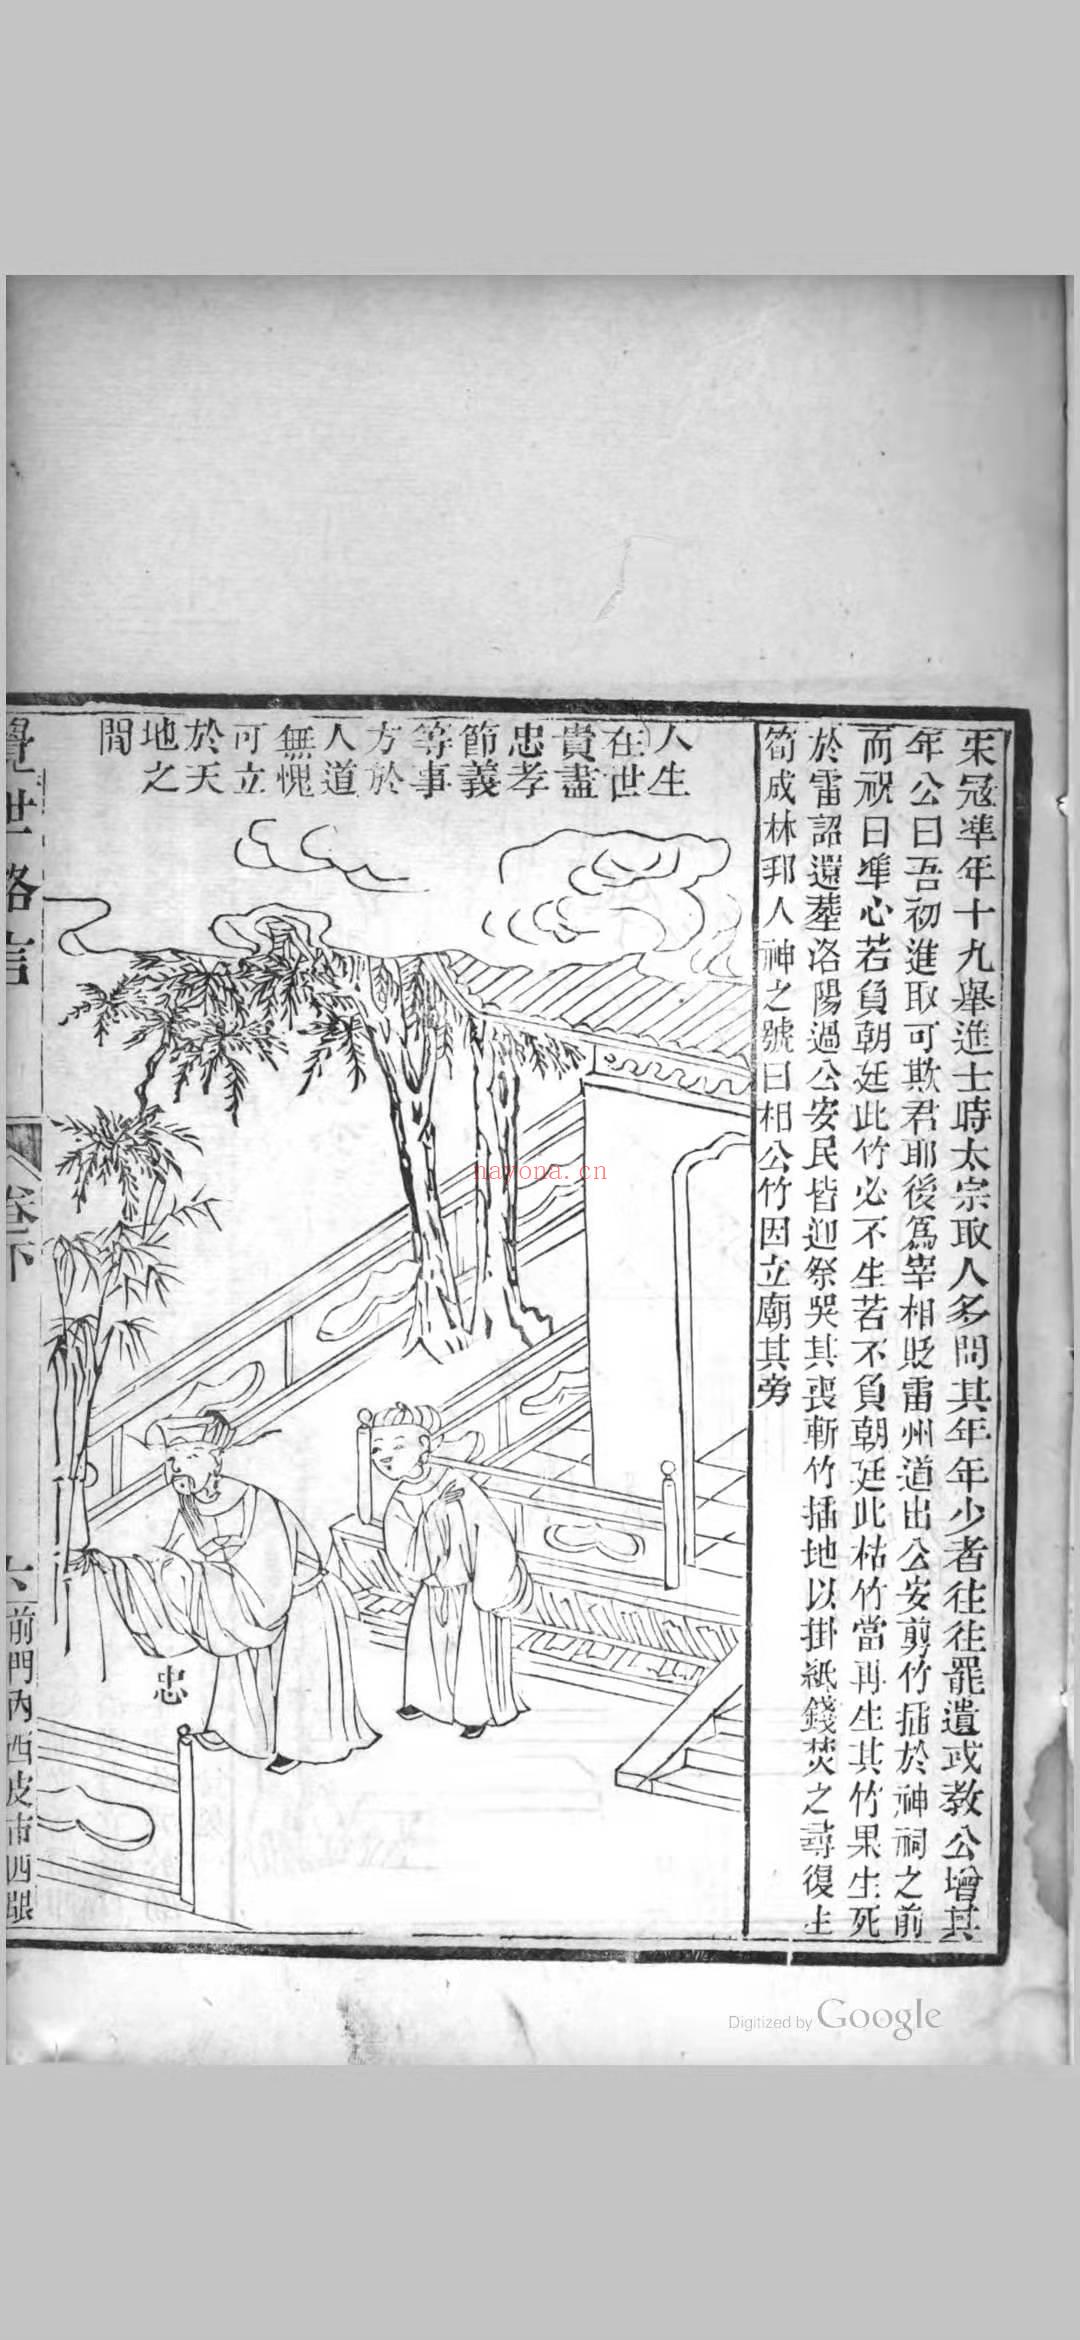 宋冦準年十九舉進士時太宗取人多問其年年少者往往罷遺或敎公增其
年公曰吾初進取可欺君耶後爲宰相貶雷州道出公安剪竹揷於神祠之前
而祝曰準心若負朝廷此竹必不生若不負朝廷此枯竹當再生其竹果生死
於雷詔還葬洛陽過公安民皆迎祭哭其喪斬竹揷地以掛紙錢焚之尋復生
筍成林邦人神之號曰相公竹因立廟其旁
人生
在世
貴盡
忠孝
節義
等事
方於
人道
無愧
可立
於天
地之
間
忠
覺世
卷下
六
前門內西皮市西
hayona.cn
Digitized by Google